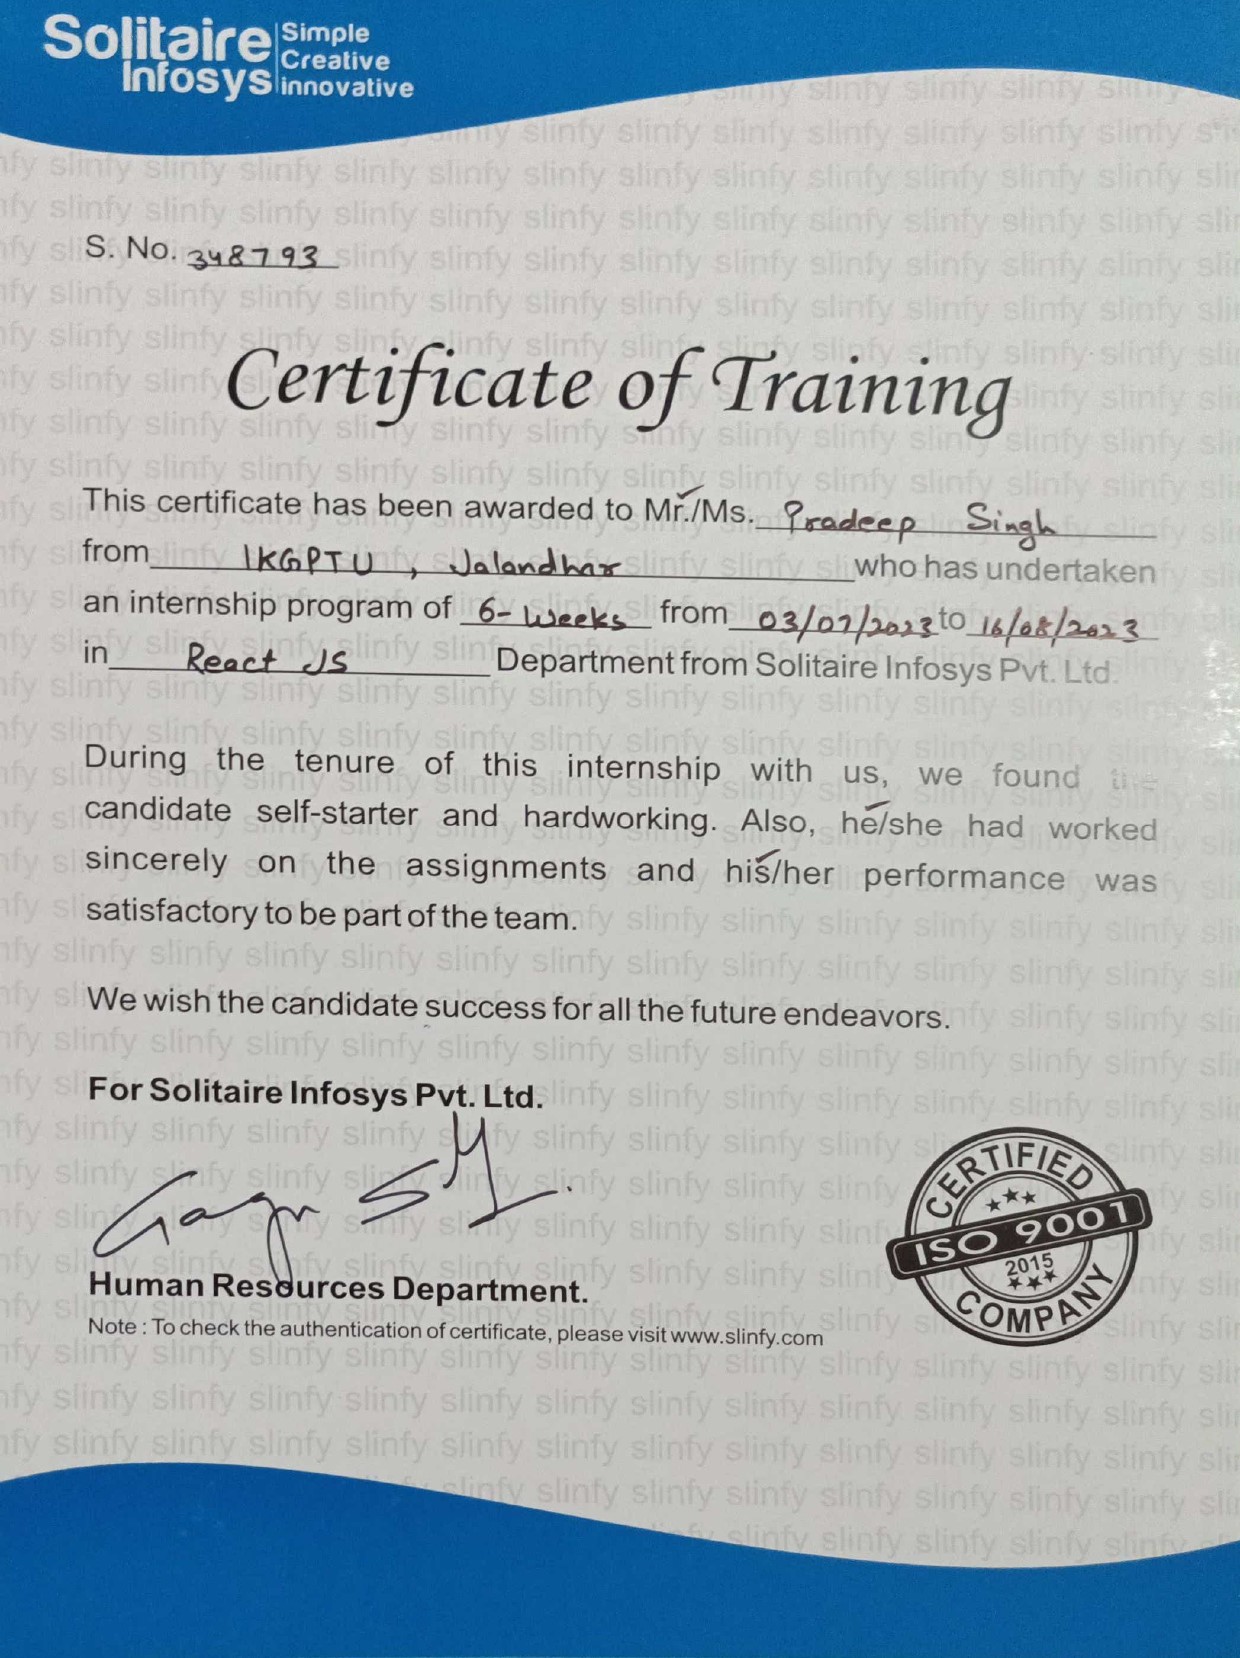 Solitaire
Infosys
Simple
Creative
innovative
S. No. 348793
Certificate of Training
This certificate has been awarded to Mr./Ms. Pradeep Singh
from IKGPTU, Jalandhar who has undertaken
an internship program of 6-Weeks from 03/07/2023 to 16/08/2023
in React JS Department from Solitaire Infosys Pvt. Ltd.
During the tenure of this internship with us, we found the
candidate self-starter and hardworking. Also, he/she had worked
sincerely on the assignments and his/her performance was
satisfactory to be part of the team.
We wish the candidate success for all the future endeavors.
For Solitaire Infosys Pvt. Ltd.
Human Resources Department.
Note : To check the authentication of certificate, please visit www.slinfy.com
CERTIFIED
ISO 9001
2015
COMPANY